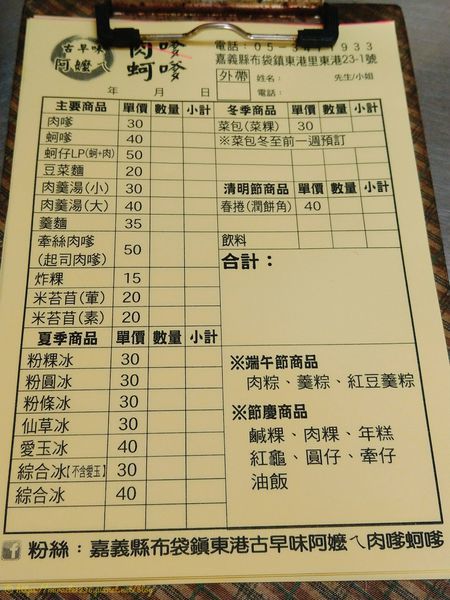 古早味
阿嬤ㄟ
肉嗲
蚵嗲
嘉義縣布袋鎮東港里東港23-1號
外帶 姓名： 先生/小姐
電話：
年 月 日
主要商品 單價 數量 小計
肉嗲 30
蚵嗲 40
蚵仔LP(蚵+肉) 50
豆菜麵 20
肉羹湯(小) 30
肉羹湯(大) 40
羹麵 35
牽絲肉嗲
(起司肉嗲) 50
炸粿 15
米苔苜(葷) 20
米苔苜(素) 20
夏季商品 單價 數量 小計
粉粿冰 30
粉圓冰 30
粉條冰 30
仙草冰 30
愛玉冰 40
綜合冰【不含愛玉】 30
綜合冰 40
冬季商品 單價 數量 小計
菜包(菜粿) 30
※菜包冬至前一週預訂
清明節商品 單價 數量 小計
春捲(潤餅角) 40
飲料
合計：
※端午節商品
肉粽、羹粽、紅豆羹粽
※節慶商品
鹹粿、肉粿、年糕
紅龜、圓仔、牽仔
油飯
f 粉絲：嘉義縣布袋鎮東港古早味阿嬤ㄟ肉嗲蚵嗲